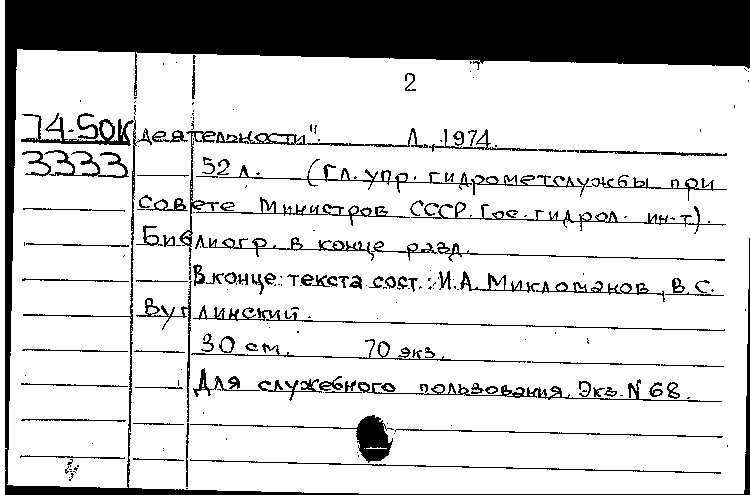 2
74-50К деятельности". Л., 1974.
3333 52 л. (Гл. упр. гидрометслужбы при
Совете Министров СССР. Гос. гидрол. ин-т).
Библиогр. в конце разд.
В конце текста сост.: И.А. Микломанов, В.С.
Вуглинский.
30 см. 70 экз.
Для служебного пользования. Экз. N 68.